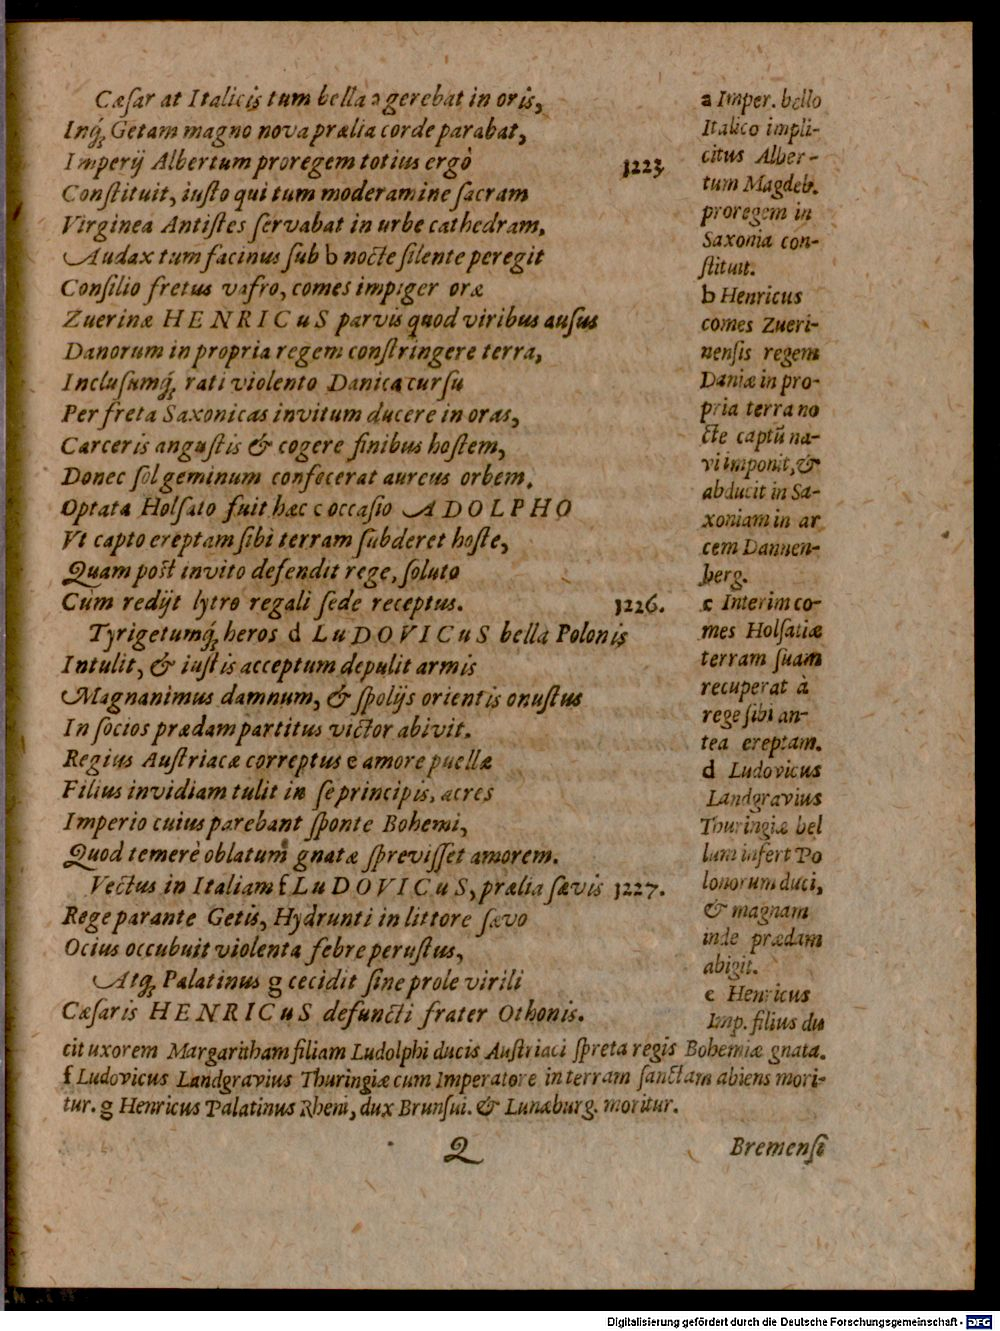 Cæſar at Italicis tum bella a gerebat in oris,
Inq; Getam magno nova prælia corde parabat,
Imperij Albertum proregem totius ergò 1223
Conſtituit, iuſto qui tum moderamine ſacram
Virginea Antiſtes ſervabat in urbe cathedram,
Audax tum facinus ſub b nocte ſilente peregit
Conſilio fretus vafro, comes impiger oræ
Zuerinæ HENRICuS parvis quod viribus auſus
Danorum in propria regem conſtringere terra,
Incluſumq; rati violento Danica curſu
Per freta Saxonicas invitum ducere in oras,
Carceris anguſtis & cogere finibus hoſtem,
Donec ſol geminum confecerat aureus orbem.
Optata Holſato fuit hæc c occaſio ADOLPHO
Vt capto ereptam ſibi terram ſubderet hoſte,
Quam poſt invito defendit rege, ſoluto
Cum redijt lytro regali ſede receptus. 1226.
Tyrigetumq; heros d LuDOVICuS bella Polonis
Intulit, & iuſtis acceptum depulit armis
Magnanimus damnum, & ſpolijs orientis onuſtus
In ſocios prædam partitus victor abivit.
Regius Auſtriacæ correptus e amore puellæ
Filius invidiam tulit in ſe principis, acres
Imperio cuius parebant ſponte Bohemi,
Quod temerè oblatum gnatæ ſpreviſſet amorem.
Vectus in Italiam f LuDOVICuS, prælia ſævis 1227.
Rege parante Getis, Hydrunti in littore ſævo
Ocius occubuit violenta febre peruſtus,
Atq; Palatinus g cecidit ſine prole virili
Cæſaris HENRICuS defuncti frater Othonis.
a Imper. bello
Italico impli-
citus Alber-
tum Magdeb.
proregem in
Saxonia con-
ſtituit.
b Henricus
comes Zueri-
nenſis regem
Daniæ in pro-
pria terra no
cte captū na-
vi imponit, &
abducit in Sa-
xoniam in ar
cem Dannen-
berg.
c Interim co-
mes Holſatiæ
terram ſuam
recuperat à
rege ſibi an-
tea ereptam.
d Ludovicus
Landgravius
Thuringiæ bel
lum infert Po
lonorum duci,
& magnam
inde prædam
abigit.
e Henricus
Imp. filius du
cit uxorem Margaritham filiam Ludolphi ducis Auſtriaci ſpreta regis Bohemiæ gnata.
f Ludovicus Landgravius Thuringiæ cum Imperatore in terram ſanctam abiens mori-
tur. g Henricus Palatinus Rheni, dux Brunſui. & Lunæburg. moritur.
Q Bremenſi
Digitalisierung gefördert durch die Deutsche Forschungsgemeinschaft - DFG